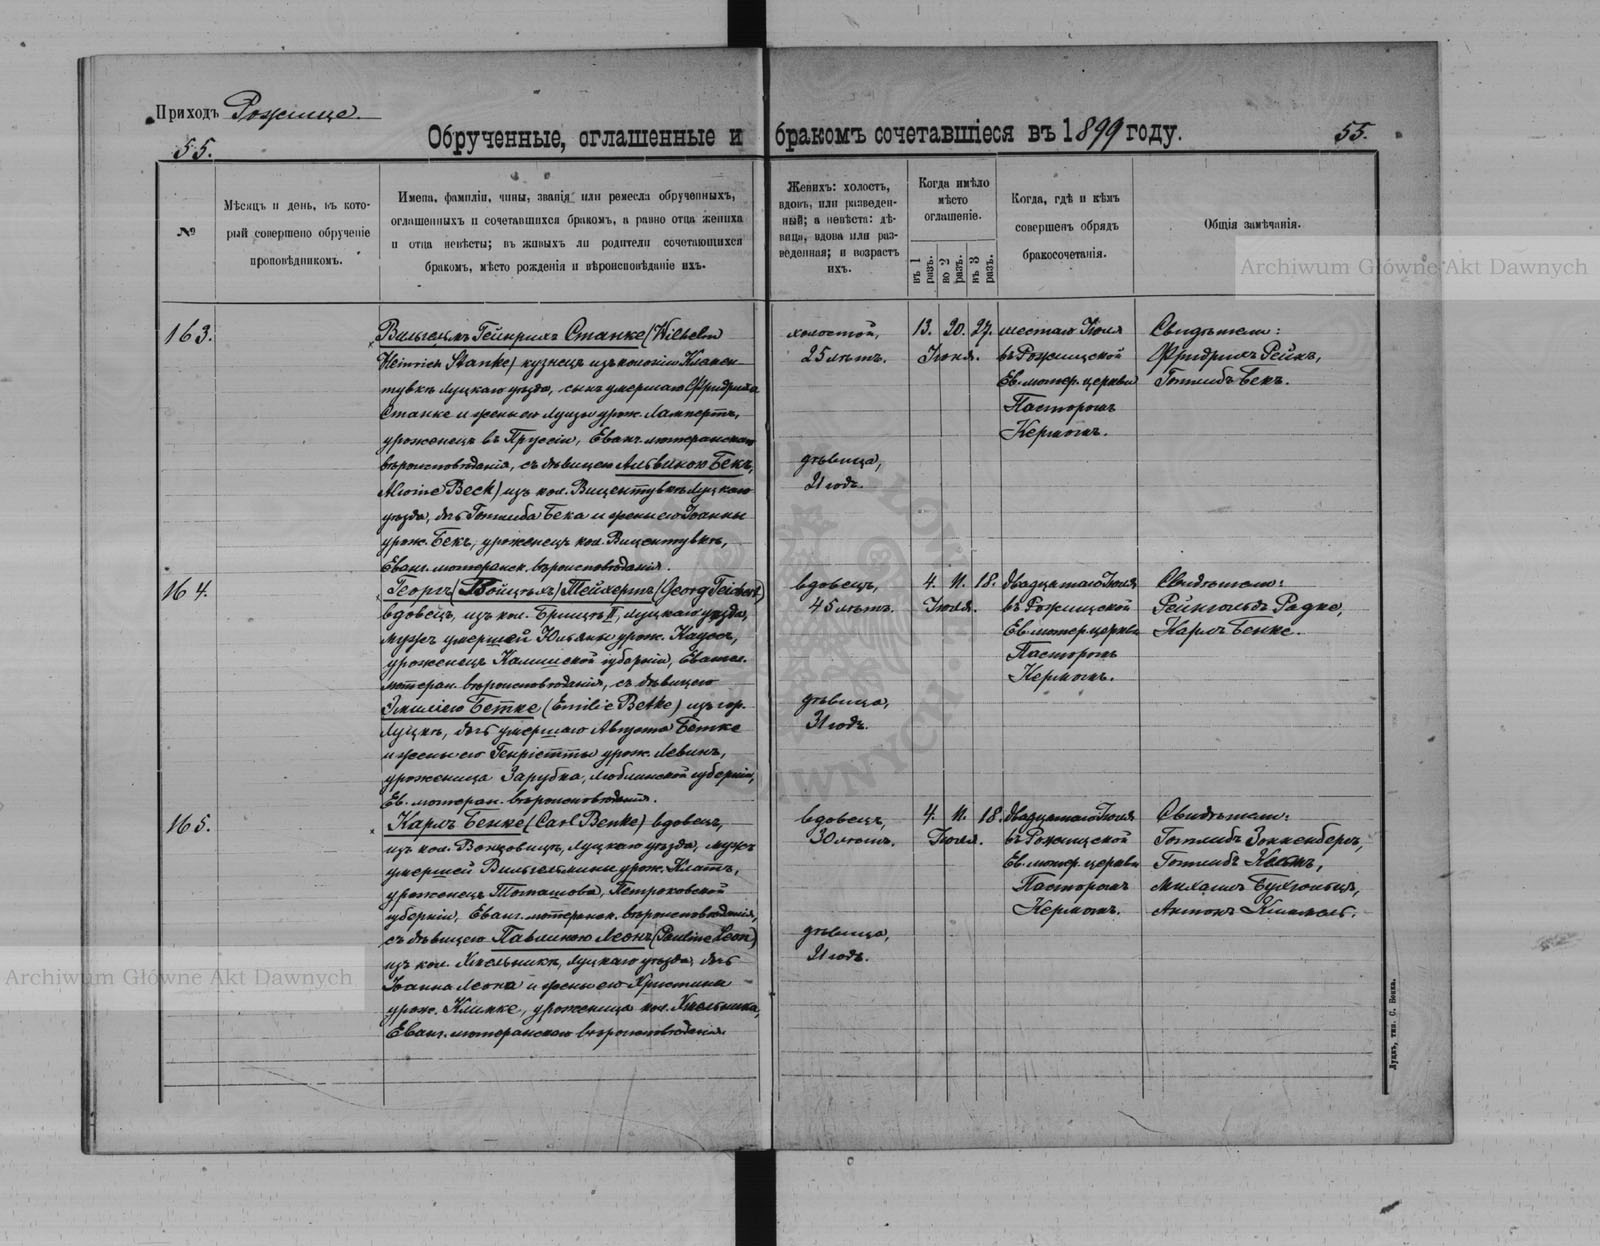 Приходъ Рожище.
55.
Обрученные, оглашенные и бракомъ сочетавшіеся въ 1899 году.
55.
№
Мѣсяцъ и день, въ кото-
рый совершено обрученіе
проповѣдникомъ.
Имена, фамиліи, чины, званія или ремесла обрученныхъ,
оглашенныхъ и сочетавшихся бракомъ, а равно отца жениха
и отца невѣсты; въ живыхъ ли родители сочетающихся
бракомъ, мѣсто рожденія и вѣроисповѣданіе ихъ.
Женихъ: холостъ,
вдовъ, или разведен-
ный; а невѣста: дѣ-
вица, вдова или раз-
веденная; и возрастъ
ихъ.
Когда имѣло
мѣсто
оглашеніе.
въ 1 разъ.
во 2 разъ.
въ 3 разъ.
Когда, гдѣ и кѣмъ
совершенъ обрядъ
бракосочетанія.
Общія замѣчанія.
Archiwum Główne Akt Dawnych
163.
Вильгельмъ Гейнрихъ Станке (Wilhelm
Heinrich Stanke) кузнецъ изъ колоніи
тувкѣ Луцкаго уѣзда, сынъ умершаго Фридриха
Станке и жены его Луизы урож. Лампертъ,
уроженецъ въ Пруссіи, Еванг. лютеранскаго
вѣроисповѣданія, съ дѣвицею Альвиною Бекъ,
Alwine Beck) изъ кол. Вицентувкѣ Луцкаго
уѣзда, дочь Готлиба Бека и жены его Іоанны
урож. Бекъ, уроженецъ кол. Вицентувкѣ,
Еванг. лютеранск. вѣроисповѣданія.
холостой,
25 лѣтъ.
дѣвица,
21 годъ.
13. 20. 27.
Іюня.
шестаго Іюля
въ Рожищской
Ев. лютер. церкви
Пасторомъ
Кермомъ.
Свидѣтели:
Фридрихъ Рейхъ,
Готлибъ Бекъ.
164.
Георгъ (Войцѣхъ) Тейхертъ (Georg Teichert)
вдовецъ, изъ кол. Брищъ II, Луцкаго уѣзда,
мужъ умершей Юльяны урож. Каусъ,
уроженецъ Калишской губерніи, Евангел.
лютеран. вѣроисповѣданія, съ дѣвицею
Эмиліею Бетке (Emilie Betke) изъ гор.
Луцкъ, дочь умершаго Августа Бетке
и жены его Генріетты урож. Левинъ,
уроженица Зарубка, Люблинской губерніи,
Ев. лютеран. вѣроисповѣданія.
вдовецъ,
45 лѣтъ.
дѣвица,
31 годъ.
4. 11. 18.
Іюля.
двадцатаго Іюля
въ Рожищской
Ев. лютер. церкви
Пасторомъ
Кермомъ.
Свидѣтели:
Рейнгольдъ Радке,
Карлъ Бенке.
165.
Карлъ Бенке (Carl Benke) вдовецъ,
изъ кол. Луцкаго уѣзда, мужъ
умершей Вильгельмины урож. Клатъ,
уроженецъ Томашова, Петроковской
губерніи, Еванг. лютеранск. вѣроисповѣданія,
съ дѣвицею Павлиною Леонъ (Pauline Leon)
изъ кол. Хмельникъ, Луцкаго уѣзда, дочь
Іоанна Леона и жены его Христины
урож. Клинке, уроженица кол. Хмельника,
Еванг. лютеранскаго вѣроисповѣданія.
вдовецъ,
30 лѣтъ.
дѣвица,
21 годъ.
4. 11. 18.
Іюля.
двадцатаго Іюля
въ Рожищской
Ев. лютер. церкви
Пасторомъ
Кермомъ.
Свидѣтели:
Готлибъ Зоккенбергъ,
Готлибъ
Михаилъ Бухгольцъ,
Антонъ Киммель.
Archiwum Główne Akt Dawnych
Луцкъ, тип. С. Бенка.